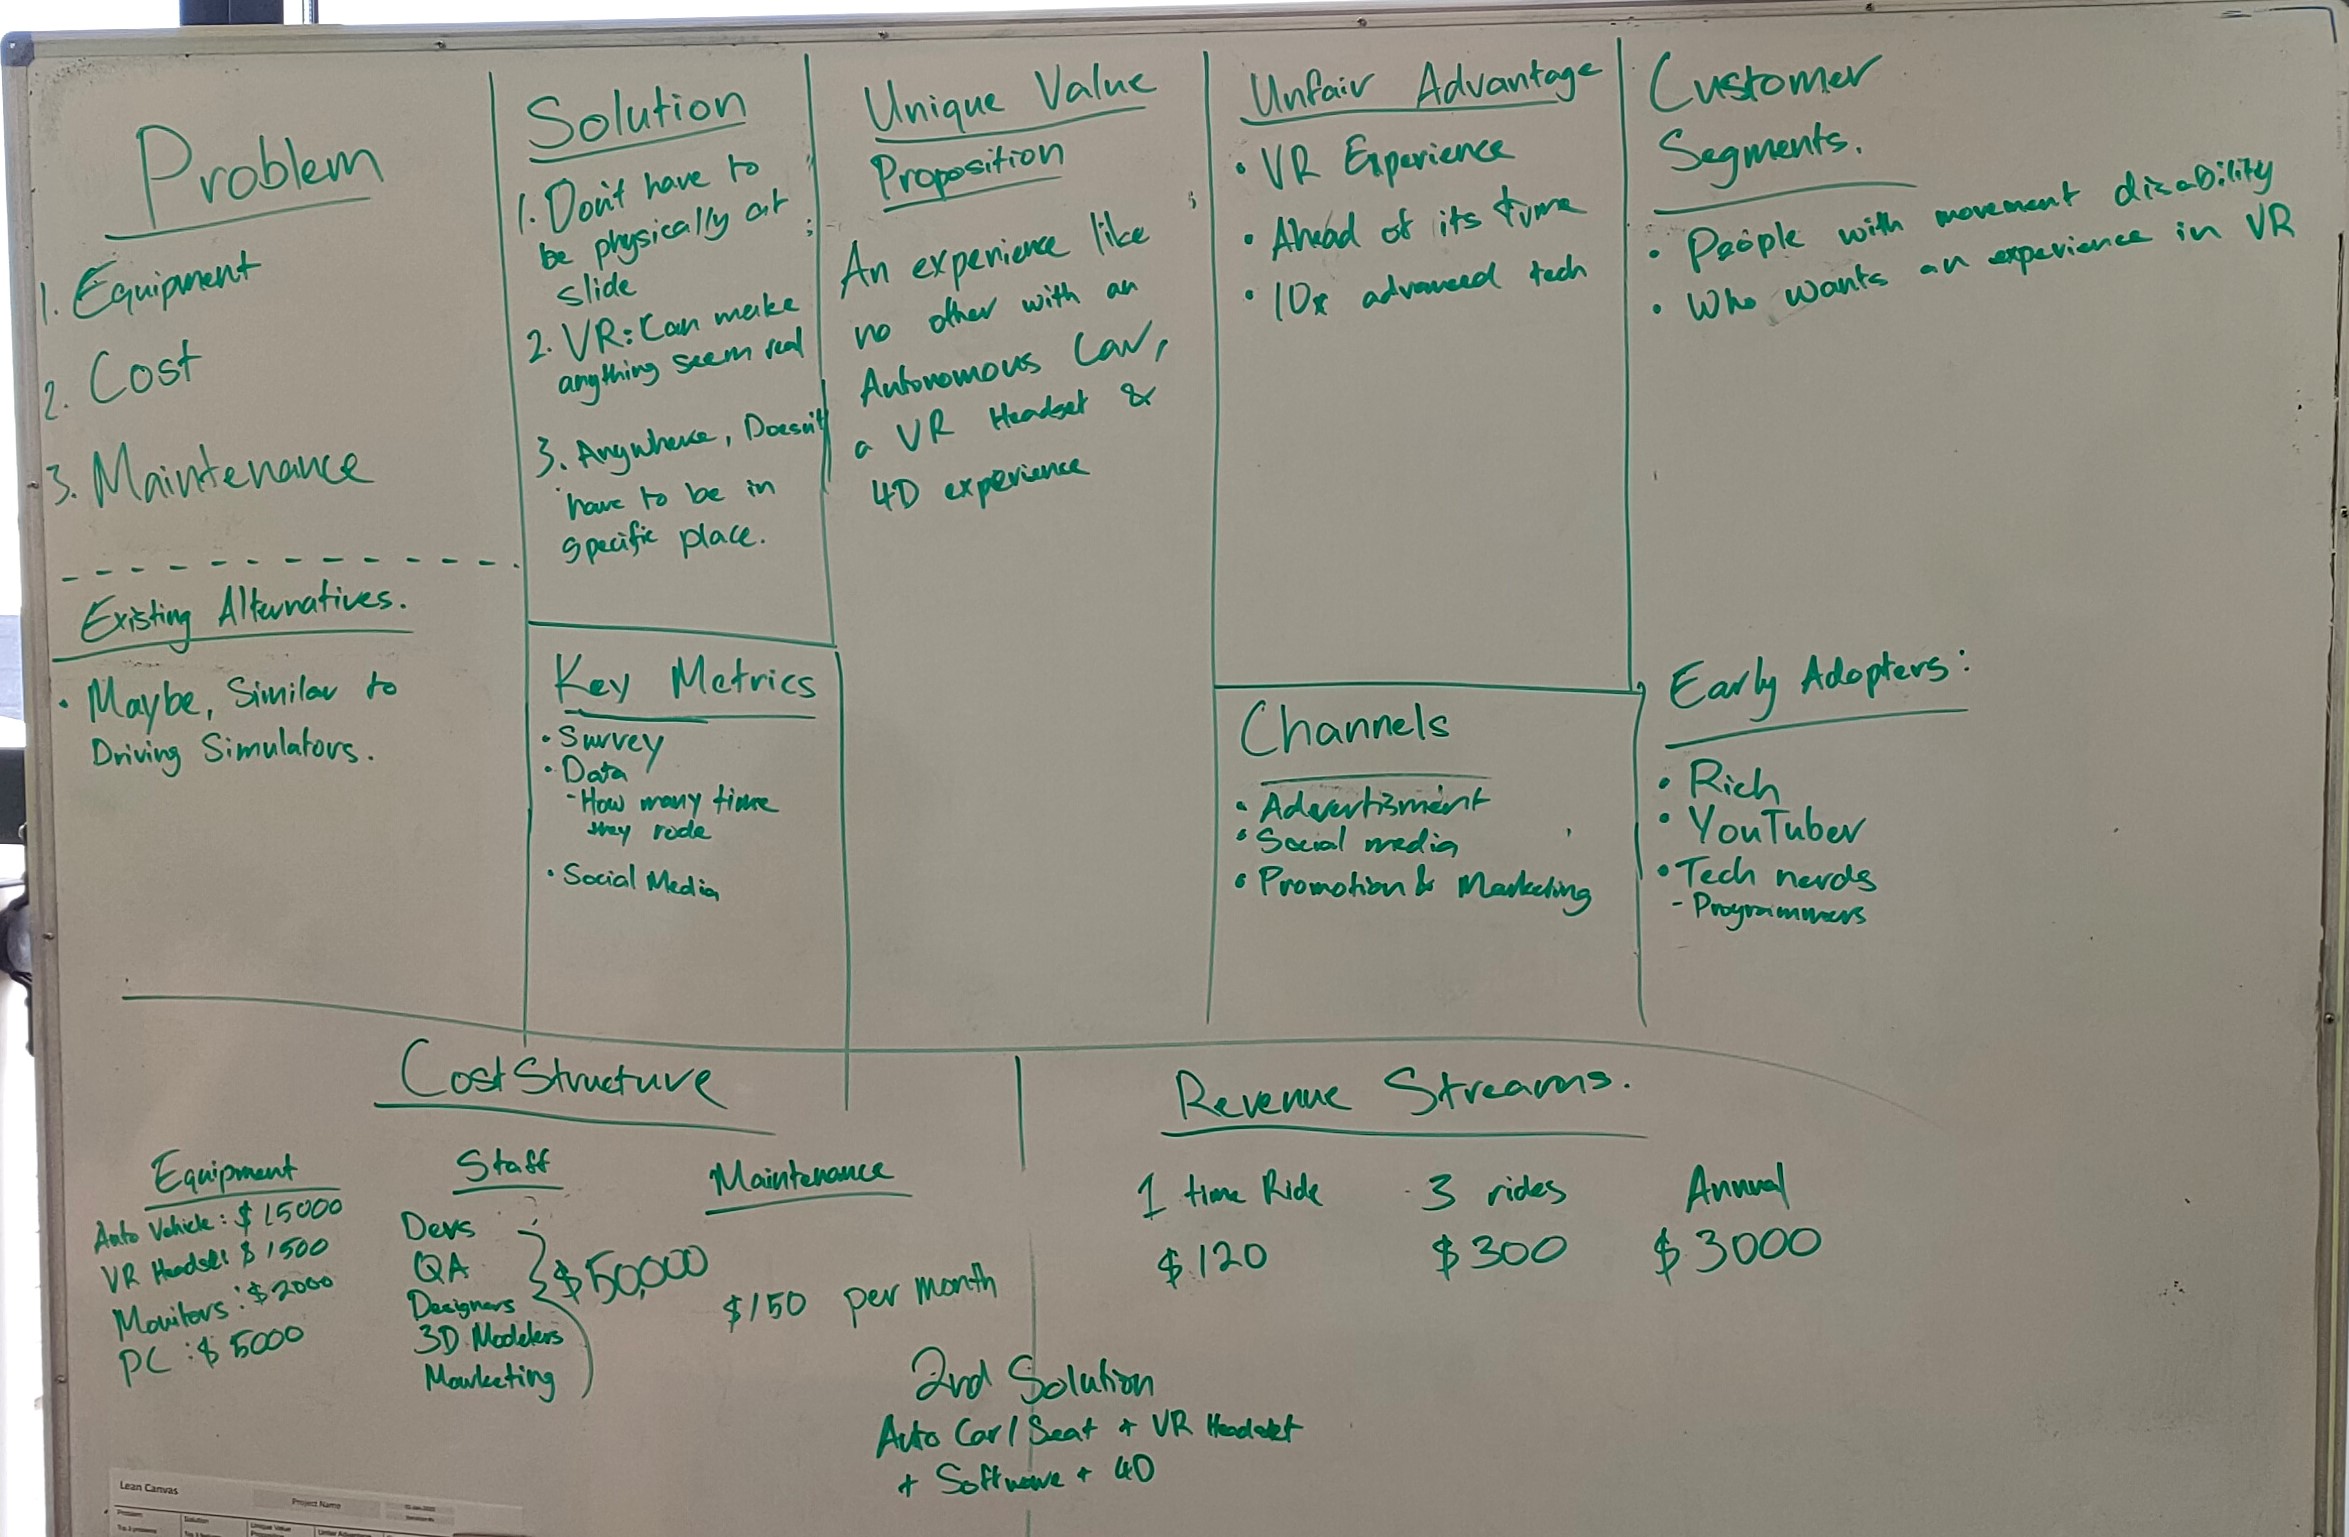 Problem
1. Equipment
2. Cost
3. Maintenance
Existing Alternatives.
• Maybe, Similar to
Driving Simulators.
Solution
1. Don't have to
be physically at
slide
2. VR: Can make
anything seem real
3. Anywhere, Doesn't
have to be in
specific place.
Key Metrics
• Survey
• Data
- How many time
they rode
• Social Media
Unique Value
Proposition
An experience like
no other with an
Autonomous Car,
a VR Headset &
4D experience
Unfair Advantage
• VR Experience
• Ahead of its time
• 10x advanced tech
Channels
• Advertisment
• Social media
• Promotion & Marketing
Customer
Segments.
• People with movement disability
• Who wants an experience in VR
Early Adopters:
• Rich
• YouTuber
• Tech nerds
- Programmers
Cost Structure
Equipment
Auto Vehicle: $15000
VR Headset $1500
Monitors: $2000
PC: $5000
Staff
Devs
QA
Designers
3D Modelers
Marketing
$50,000
Maintenance
$150 per month
Revenue Streams.
1 time Ride
$120
3 rides
$300
Annual
$3000
2nd Solution
Auto Car/Seat + VR Headset
+ Software + 4D
Lean Canvas
Project Name
Problem
Solution
Unique Value
Top 3 problems